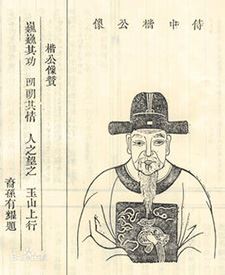 侍中楷公像
楷公像贊
巍巍其功 其情 人之望之 玉山上行
裔孫有耀題